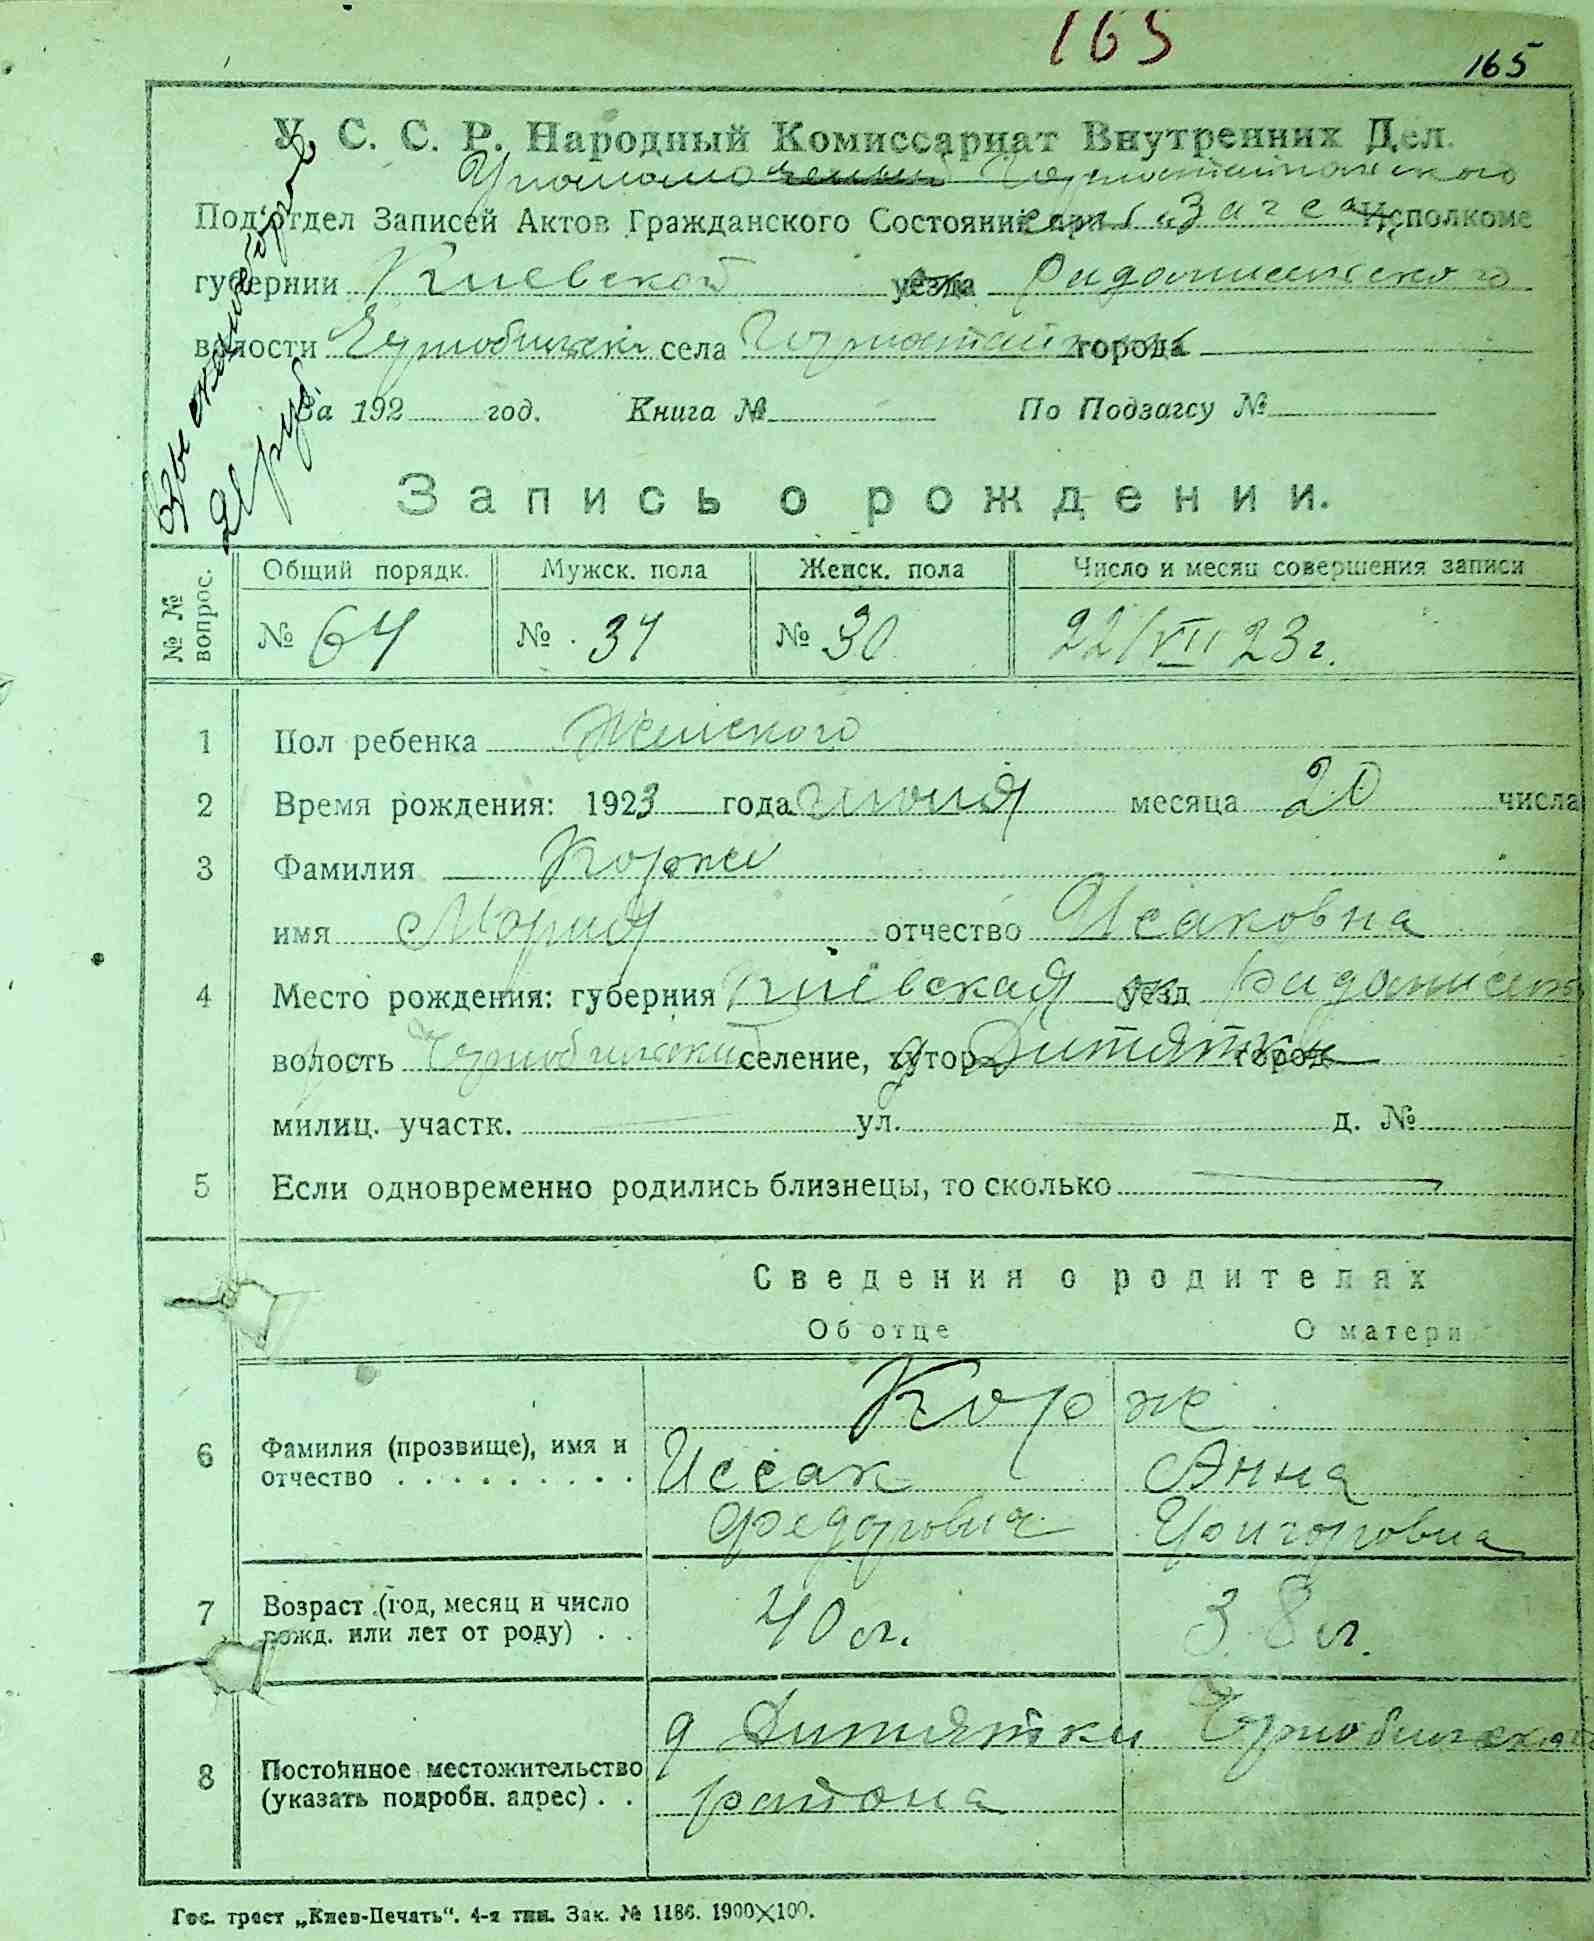 165
165
У. С. С. Р. Народный Комиссариат Внутренних Дел.
Под'отдел Записей Актов Гражданского Состояния при Загса Исполкоме
губернии Киевской уезда Радомисльского
волости села города
За 192 год. Книга № По Подзагсу №
Запись о рождении.
№ № вопрос. Общий порядк. Мужск. пола Женск. пола Число и месяц совершения записи
№ 64 № 34 № 30 22/VII 23 г.
1 Пол ребенка Женского
2 Время рождения: 1923 года июня месяца 20 числа
3 Фамилия Корж
имя Мория отчество Исаковна
4 Место рождения: губерния Киевская уезд
волость селение, хутор д Дитятки город
милиц. участк. ул. д. №
5 Если одновременно родились близнецы, то сколько
Сведения о родителях
Об отце О матери
Корж
6 Фамилия (прозвище), имя и отчество . . . . . . . . . Иссак Анна
Федорович Григоровна
7 Возраст (год, месяц и число рожд. или лет от роду) . . 40 л. 38 л.
8 Постоянное местожительство (указать подробн. адрес) . . д Дитятки Чернобильского
района
Гос. трест „Киев-Печать“. 4-я тип. Зак. № 1186. 1900×100.